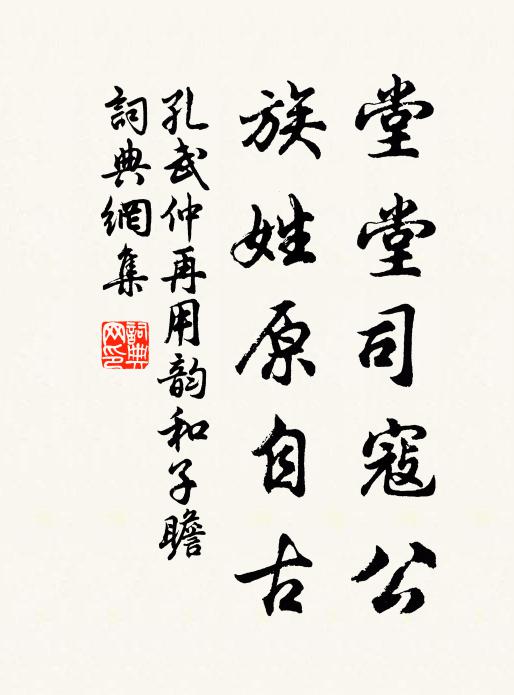 堂堂司寇公
族姓原自古
孔武仲再用韵和子瞻
詞典網集
詞典网印